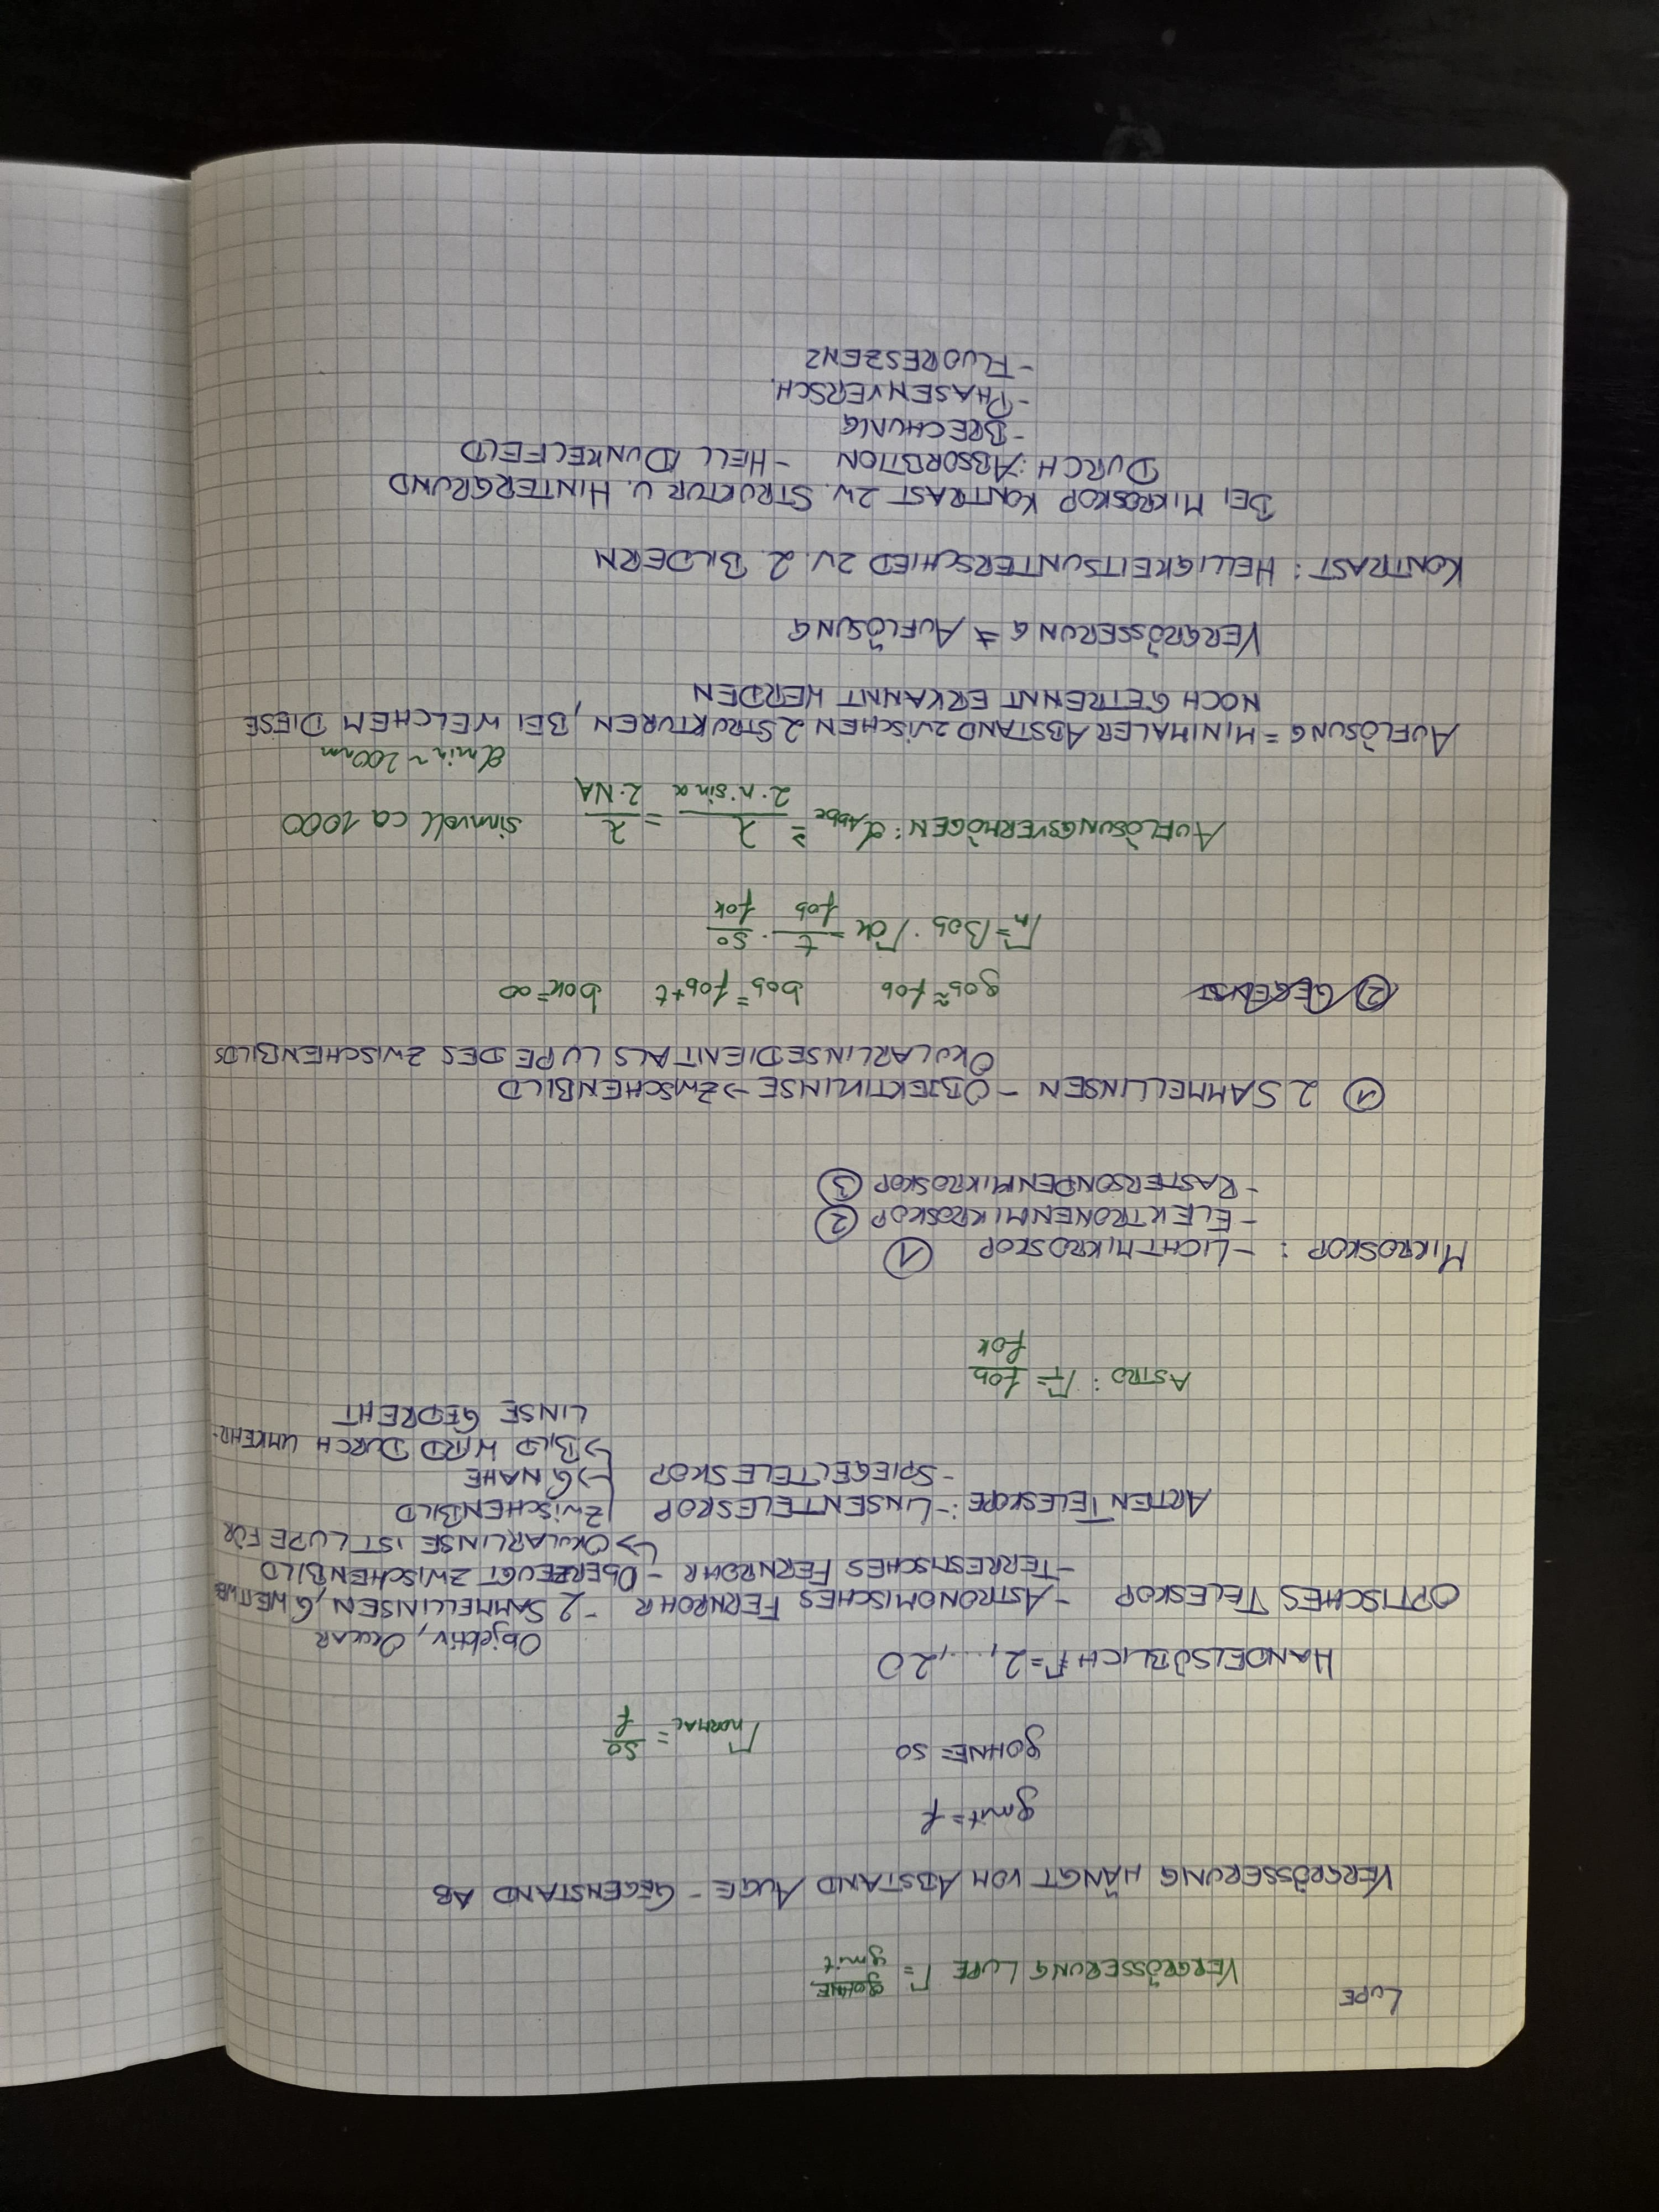 LUPE
VERGRÖSSERUNG LUPE Γ = gOHNE / gmit
VERGRÖSSERUNG HÄNGT VOM ABSTAND AUGE - GEGENSTAND AB
gmit = f
gOHNE = so
ΓNORMAL = so / f
HANDELSÜBLICH Γ = 2, ..., 20
Objektiv, OKULAR
OPTISCHES TELESKOP - ASTRONOMISCHES FERNROHR - 2 SAMMELLINSEN, G WEIT WEG
- TERRESTISCHES FERNROHR - ObERZEUGT ZWISCHENBILD
↳ OKULARLINSE IST LUPE FÜR
ARTEN TELESKOPE: - LINSENTELESKOP | ZWISCHENBILD
- SPIEGELTELESKOP ↳ G NAHE
↳ BILD WIRD DURCH UMKEHR-
LINSE GEDREHT
ASTRO: ΓT = fob / fok
MIKROSKOP: - LICHTMIKROSKOP ①
- ELEKTRONENMIKROSKOP ②
- RASTERSONDENMIKROSKOP ③
① 2 SAMMELLINSEN - OBJEKTIVLINSE → ZWISCHENBILD
OKULARLINSE DIENT ALS LUPE DES ZWISCHENBILDS
② GEGENST
gob ≈ fob bob = fob + t bok = ∞
Γm = βob · Γok = t / fob · so / fok
AUFLÖSUNGSVERMÖGEN: dAbbe ≥ λ / 2·n·sin α = λ / 2·NA sinnvoll ca 1000
dmin ~ 200nm
AUFLÖSUNG = MINIMALER ABSTAND ZWISCHEN 2 STRUKTUREN, BEI WELCHEM DIESE
NOCH GETRENNT ERKANNT WERDEN
VERGRÖSSERUNG ≠ AUFLÖSUNG
KONTRAST: HELLIGKEITSUNTERSCHIED ZW. 2 BILDERN
BEI MIKROSKOP KONTRAST ZW. STRUKTUR U. HINTERGRUND
DURCH: ABSORBTION - HELL / DUNKELFELD
- BRECHUNG
- PHASENVERSCH.
- FLUORESZENZ